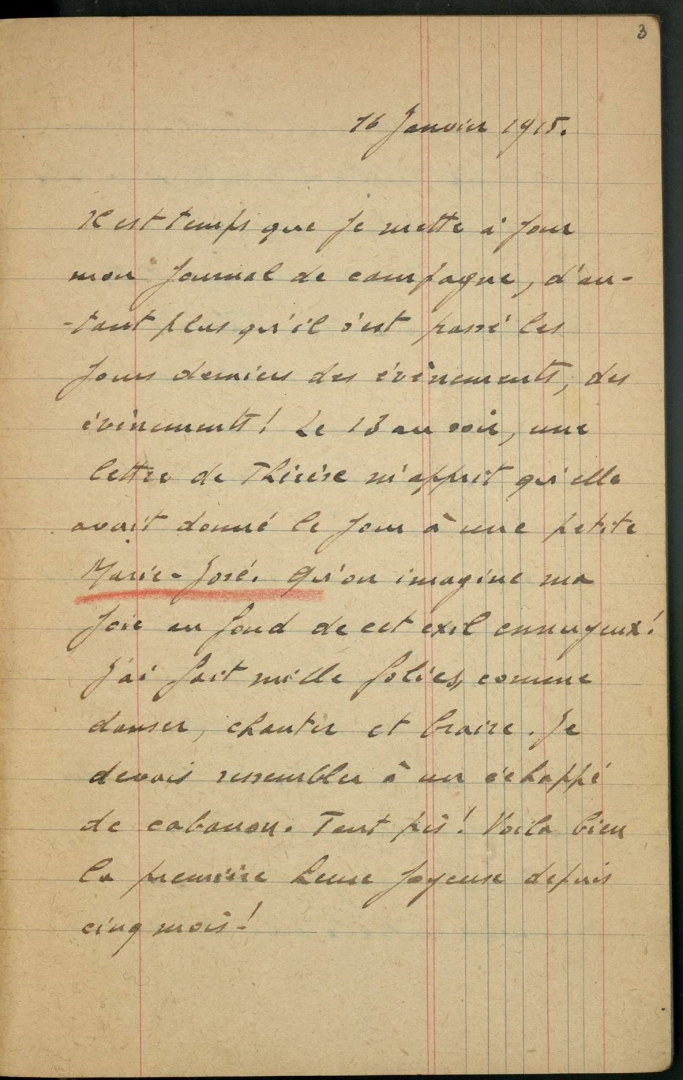 3
16 Janvier 1915.
Il est temps que je mette à jour
mon journal de campagne, d'au-
-tant plus qu'il s'est passé les
jours derniers des évènements, des
évènements ! Le 13 au soir, une
lettre de Thérèse m'apprit qu'elle
avait donné le jour à une petite
Marie-José. Qu'on imagine ma
joie au fond de cet exil ennuyeux !
J'ai fait mille folies, comme
danser, chanter et braire. Je
devais ressembler à un échappé
de cabanon. Tant pis ! Voilà bien
la première heure joyeuse depuis
cinq mois !